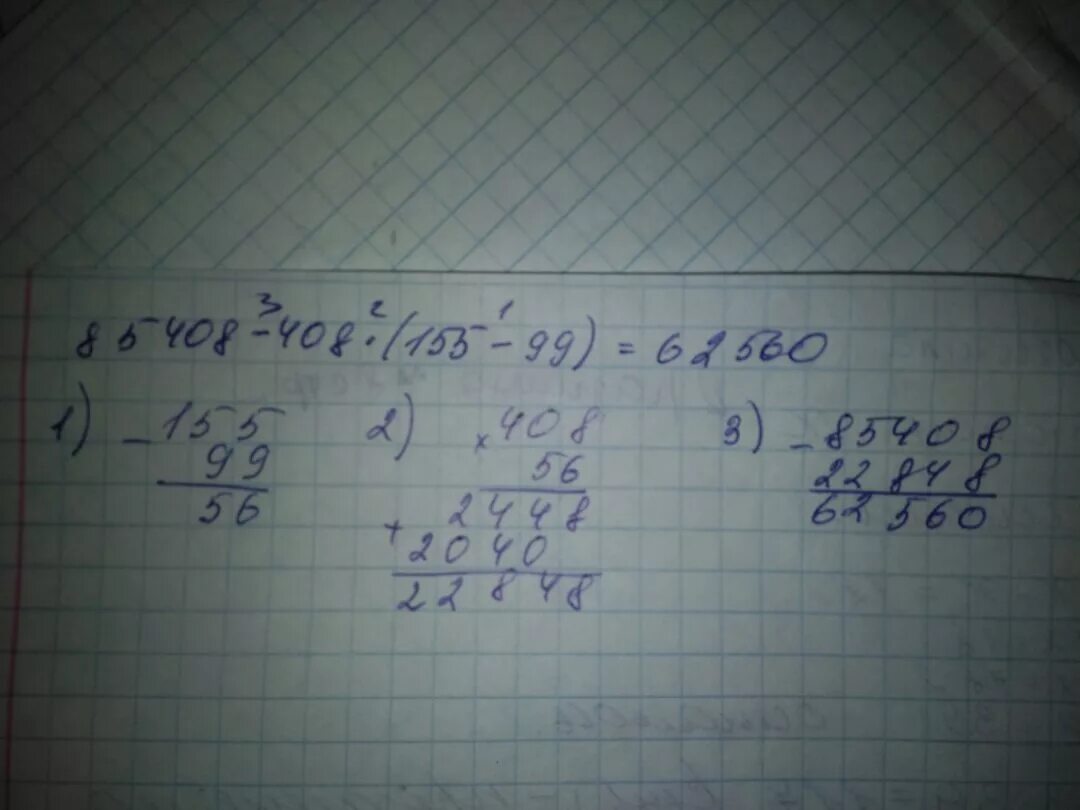 85408 - 408 · (155 - 99) = 62560
3 2 1
1) - 155
99
56
2) × 408
56
+ 2448
2040
22848
3) - 85408
22848
62560